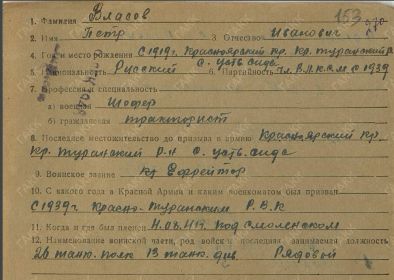 1. Фамилия Власов 153
2. Имя Петр 3. Отчество Иванович
4. Год и место рождения С 1919 г. Красноярский кр. Кр. Туранский р
с. Усть Сида
5. Национальность Русский 6. Партийность Чл. В.Л.К.С.М. с 1939
7. Профессия и специальность
а) военная Шофер
б) гражданская тракторист
8. Последнее местожительство до призыва в армию Красноярский кр.
Кр. Туранский р-н с. Усть. Сида
9. Воинское звание Ефрейтор
10. С какого года в Красной Армии и каким военкоматом был призван
С 1939 г. Красно-Туранским Р.В.К
11. Когда и где был пленен под Смоленском
12. Наименование воинской части, род войск и последняя занимаемая должность
26 танк. полк 13 танк. див Рядовой